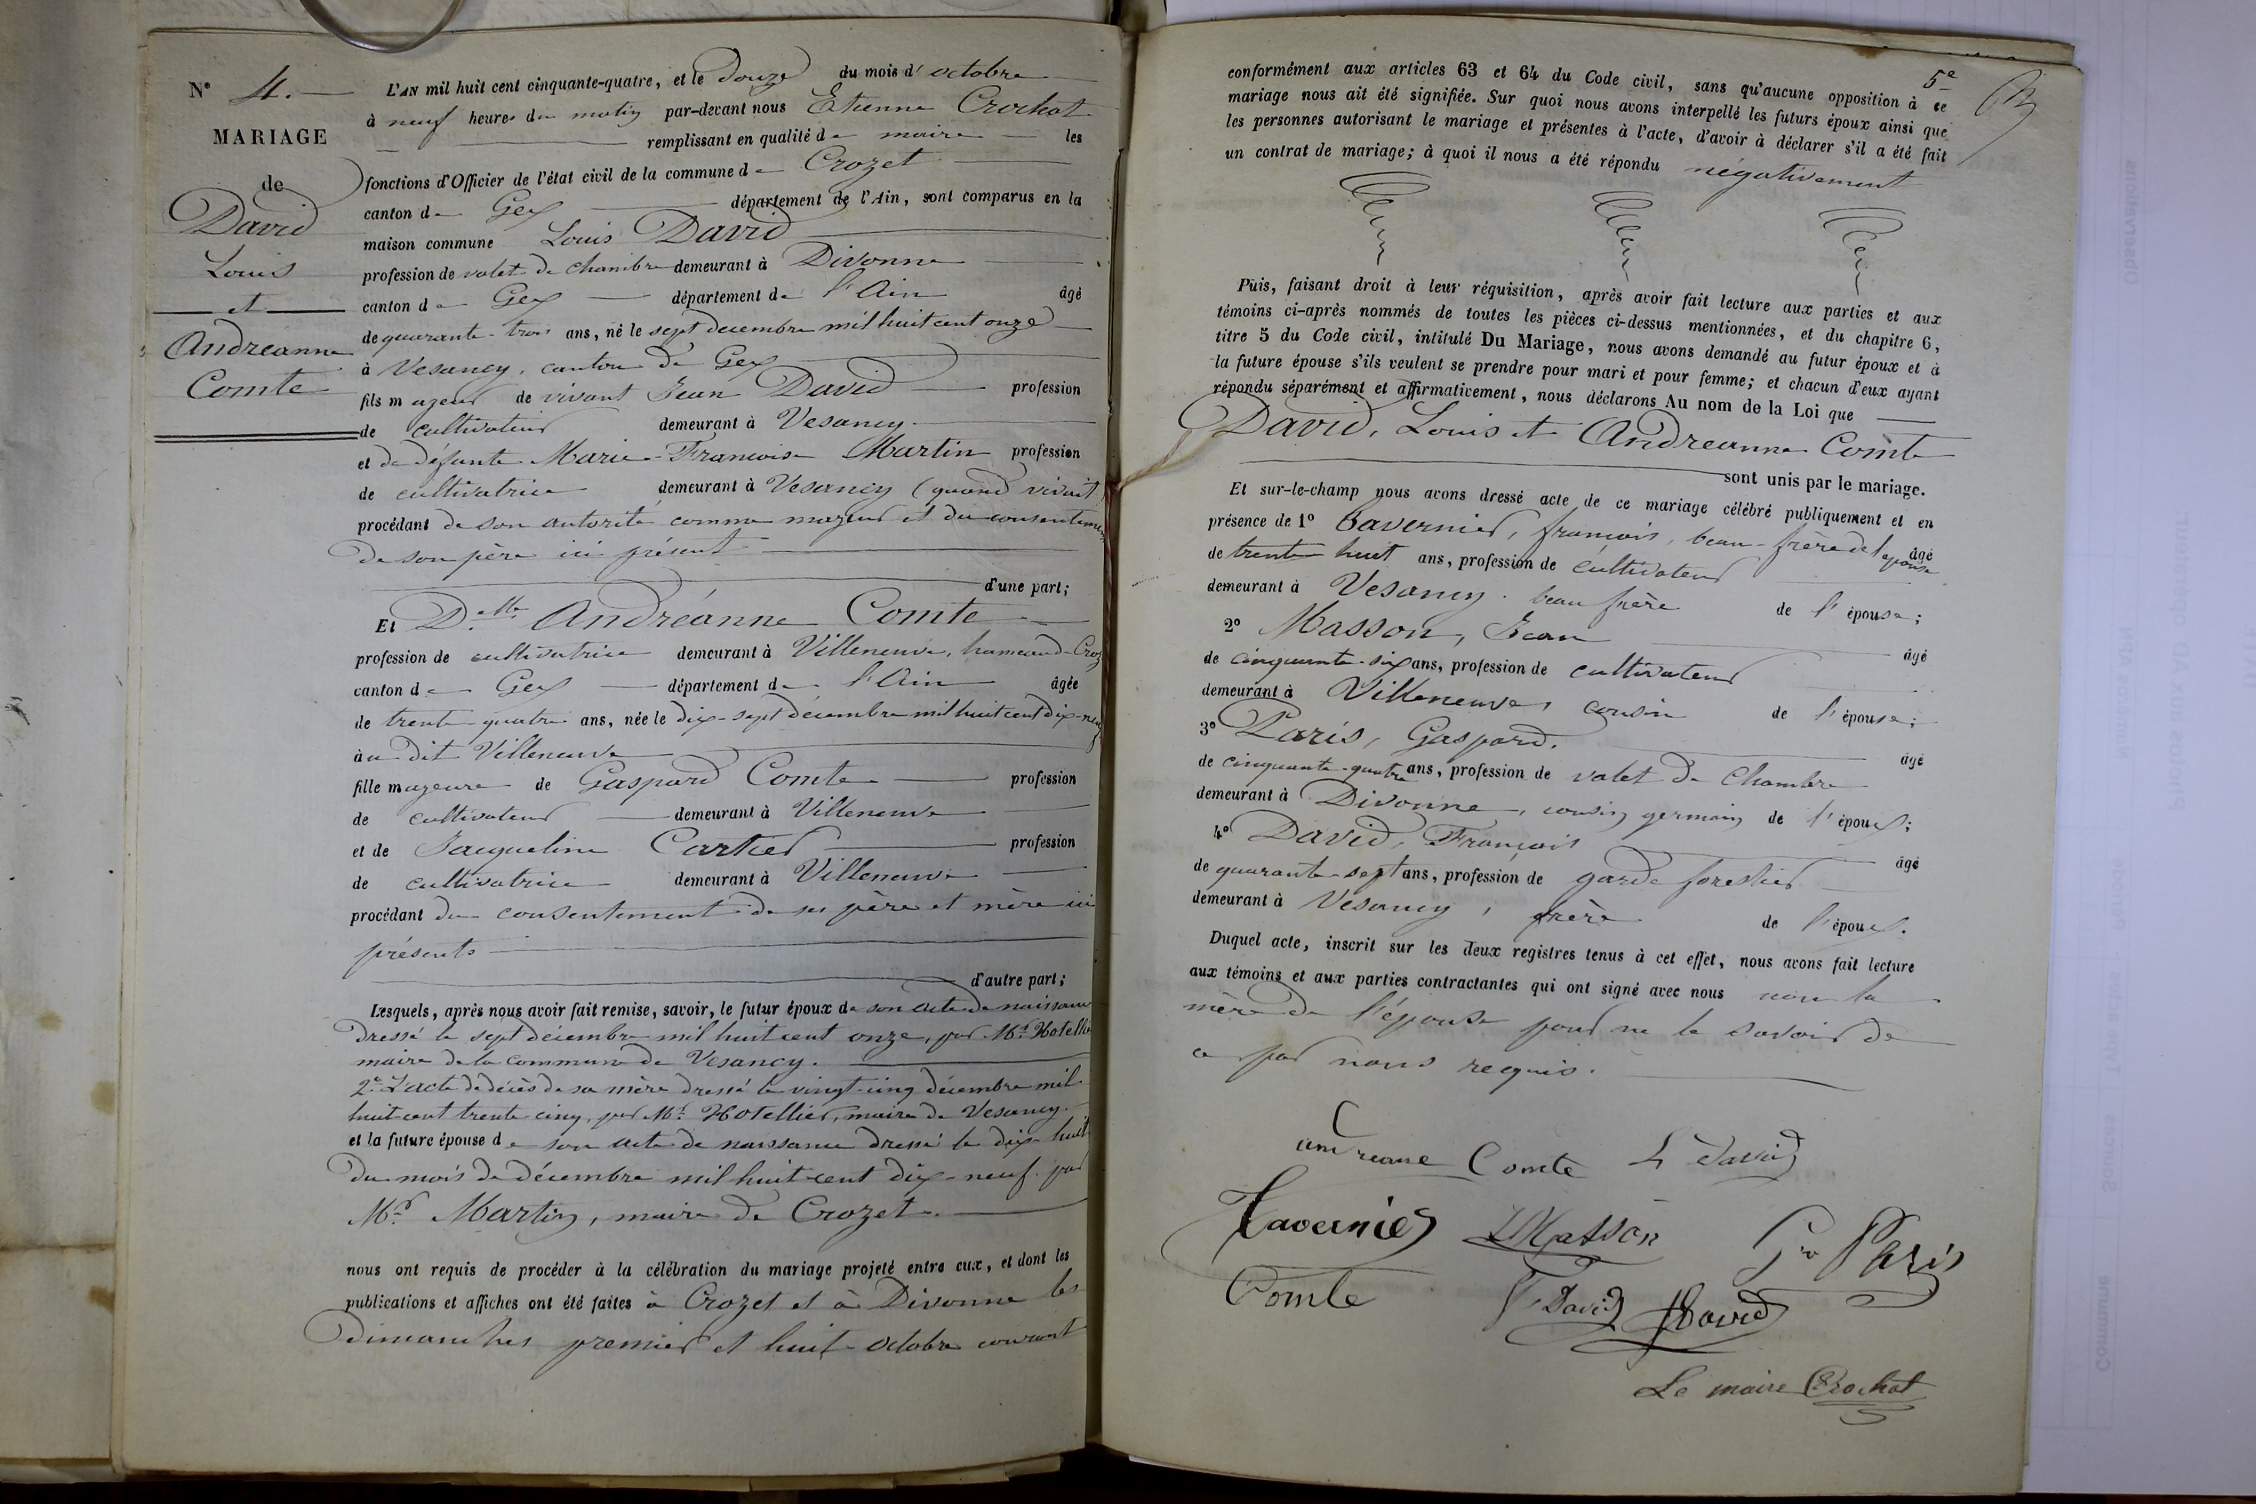 N° 4.
MARIAGE
de
David
Louis
et
Andréanne
Comte
L'AN mil huit cent cinquante-quatre, et le douze du mois d'octobre
à neuf heures du matin par-devant nous Etienne Crochat
remplissant en qualité de maire les
fonctions d'Officier de l'état civil de la commune de Crozet
canton de Gex département de l'Ain, sont comparus en la
maison commune Louis David
profession de valet de chambre demeurant à Divonne
canton de Gex département de l'Ain âgé
de quarante-trois ans, né le sept decembre mil huit cent onze
à Vesancy, canton de Gex
fils majeur de vivant Jean David profession
de cultivateur demeurant à Vesancy.
et de defunte Marie-Francoise Martin profession
de cultivatrice demeurant à Vesancy (quand vivait
procédant de son autorité comme majeur et du consenteme
de son père ici présent
d'une part;
Et D.lle Andréanne Comte
profession de cultivatrice demeurant à Villeneuve, hameau de Croz
canton de Gex département de l'Ain âgée
de trente-quatre ans, née le dix-sept décembre mil huit cent dix-neuf
au dit Villeneuve
fille majeure de Gaspard Comte profession
de cultivateur demeurant à Villeneuve
et de Jacqueline Cartier profession
de cultivatrice demeurant à Villeneuve
procédant du consentement de ses père et mère ici
présents
d'autre part;
Lesquels, après nous avoir fait remise, savoir, le futur époux de son acte de naissance
dressé le sept décembre mil huit cent onze, par Mr. Hotellie
maire de la commune de Vesancy.
2e L'acte de décès de sa mère dressé le vingt-cinq décembre mil
huit cent trente cinq, par Mr. Hotellier, maire de Vesancy.
et la future épouse de son acte de naissance dressé le dix-huit
du mois de décembre mil huit cent dix-neuf par
Mr. Martin, maire de Crozet.
nous ont requis de procéder à la célébration du mariage projeté entre eux, et dont les
publications et affiches ont été faites à Crozet et à Divonne les
dimanches premier et huit octobre courant
5e
conformément aux articles 63 et 64 du Code civil, sans qu'aucune opposition à ce
mariage nous ait été signifiée. Sur quoi nous avons interpellé les futurs époux ainsi que
les personnes autorisant le mariage et présentes à l'acte, d'avoir à déclarer s'il a été fait
un contrat de mariage; à quoi il nous a été répondu négativement
Puis, faisant droit à leur réquisition, après avoir fait lecture aux parties et aux
témoins ci-après nommés de toutes les pièces ci-dessus mentionnées, et du chapitre 6,
titre 5 du Code civil, intitulé Du Mariage, nous avons demandé au futur époux et à
la future épouse s'ils veulent se prendre pour mari et pour femme; et chacun d'eux ayant
répondu séparément et affirmativement, nous déclarons Au nom de la Loi que
David, Louis et Andreanne Comte
sont unis par le mariage.
Et sur-le-champ nous avons dressé acte de ce mariage célébré publiquement et en
présence de 1° Tavernier, francois, beau-frère de l'épouse âgé
de trente huit ans, profession de cultivateur
demeurant à Vesancy. beau frère de l'épouse;
2° Masson, Jean âgé
de cinquante-six ans, profession de cultivateur
demeurant à Villeneuve, cousin de l'épouse;
3° Paris, Gaspard. âgé
de cinquante-quatre ans, profession de valet de Chambre
demeurant à Divonne, cousin germain de l'époux;
4° David, François âgé
de quarante-sept ans, profession de garde forestier
demeurant à Vesancy, frère de l'époux.
Duquel acte, inscrit sur les deux registres tenus à cet effet, nous avons fait lecture
aux témoins et aux parties contractantes qui ont signé avec nous non la
mère de l'épouse pour ne le savoir de
ce par nous requis.
andreane Comte L David
Tavernier J Masson Gd Paris
Comte F David J David
Le maire Crochat